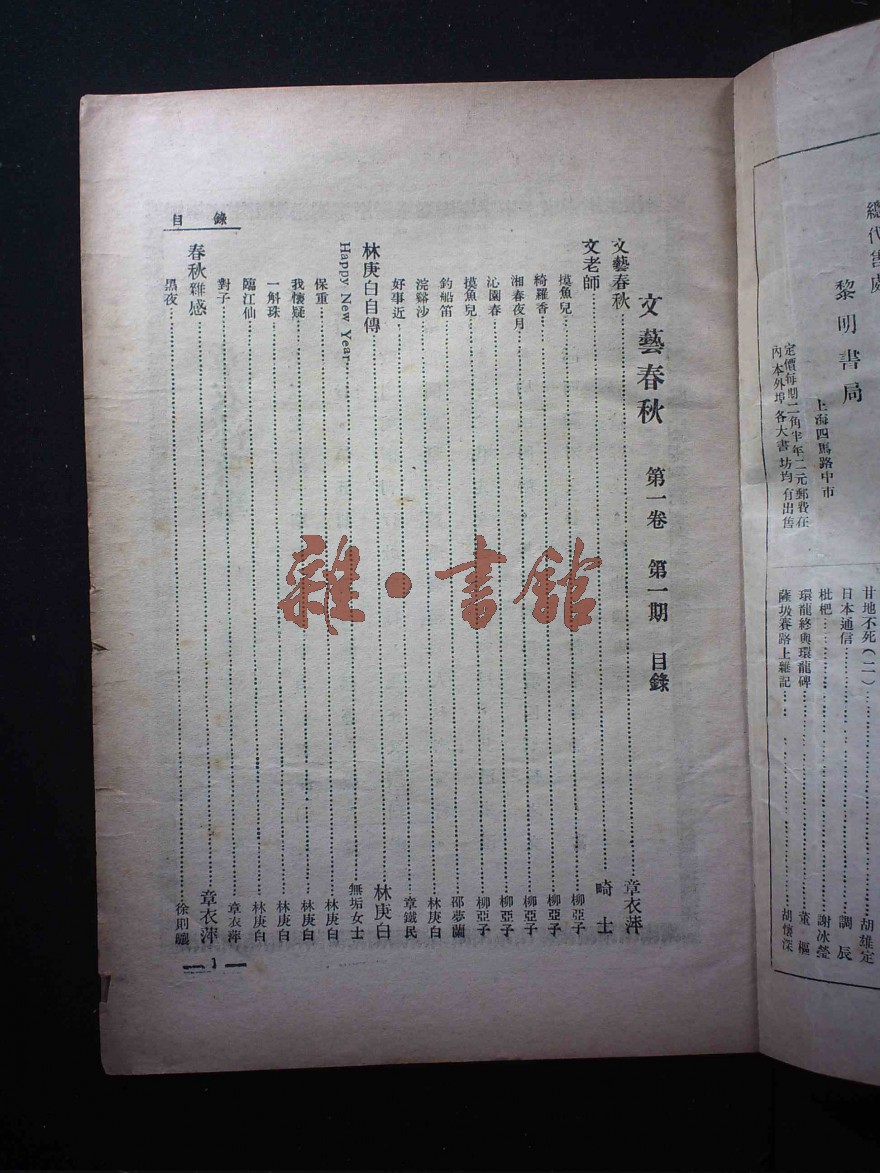 總代售處
黎明書局
上海四馬路中市
定價每期二角半年二元郵費在
內本外埠各大書坊均有出售
甘地不死(二)……胡雄定
日本通信……調辰
枇杷……謝冰瑩
環龍終與環龍碑……董樞
薩坡賽路上雜記……胡懷深
文藝春秋 第一卷 第一期 目錄
文藝春秋……章衣萍
文老師……畸士
摸魚兒……柳亞子
綺羅香……柳亞子
湘春夜月……柳亞子
沁園春……柳亞子
摸魚兒……柳亞子
釣船笛……邵夢蘭
浣谿沙……林庚白
好事近……章鐵民
林庚白自傳……林庚白
Happy New Year……無垢女士
保重……林庚白
我懷疑……林庚白
一斛珠……林庚白
臨江仙……林庚白
對子……章衣萍
春秋雜感……章衣萍
黑夜……徐則驤
目錄
— 1 —
雜·書館